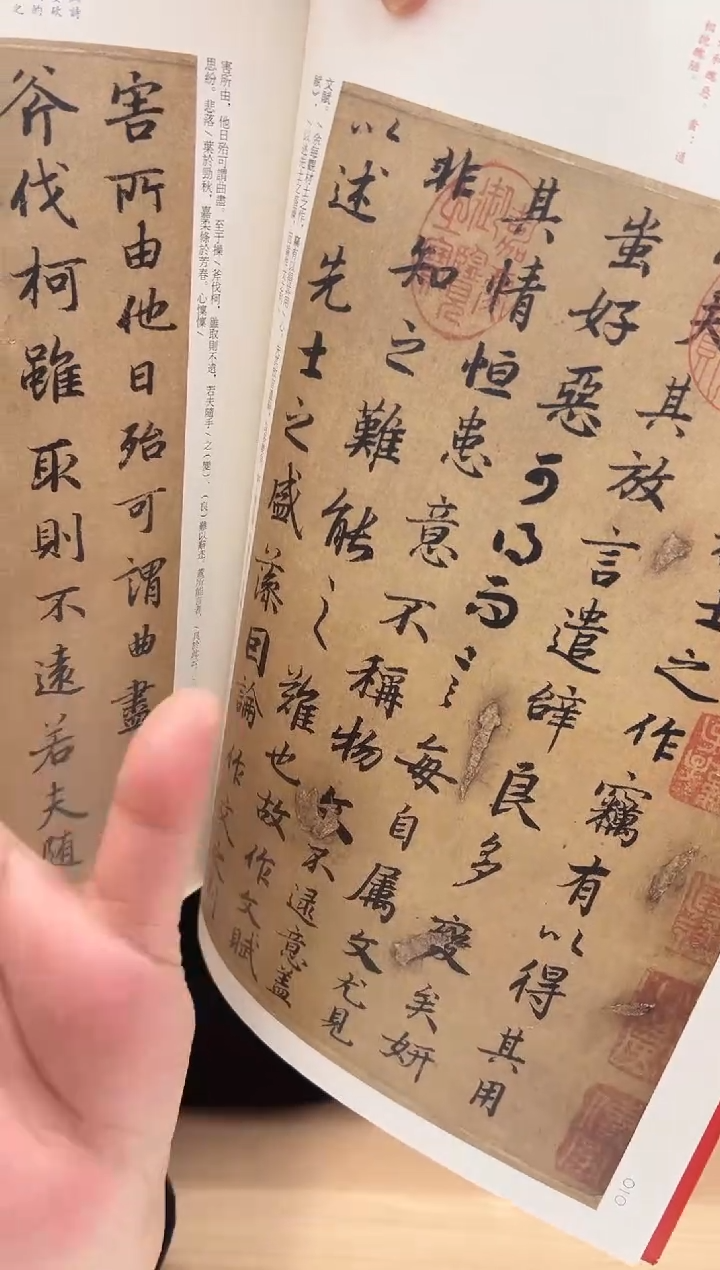 士之作竊有以得其用
其放言遣辭良多變矣妍
蚩好惡可得而言〻每自属文尤見
其情恒患意不稱物文不逮意盖
非知之難能之難也故作文賦
以述先士之盛藻因論作文之
文賦。
010
害所由，他日殆可謂曲盡。至于操丶斧伐柯，雖取則不遠，若夫隨手丶之（變），（良）難以辭逮。
思紛。悲落丶葉於勁秋，嘉柔條於芳春。心懍懍丶
害所由他日殆可謂曲盡
斧伐柯雖取則不遠若夫随